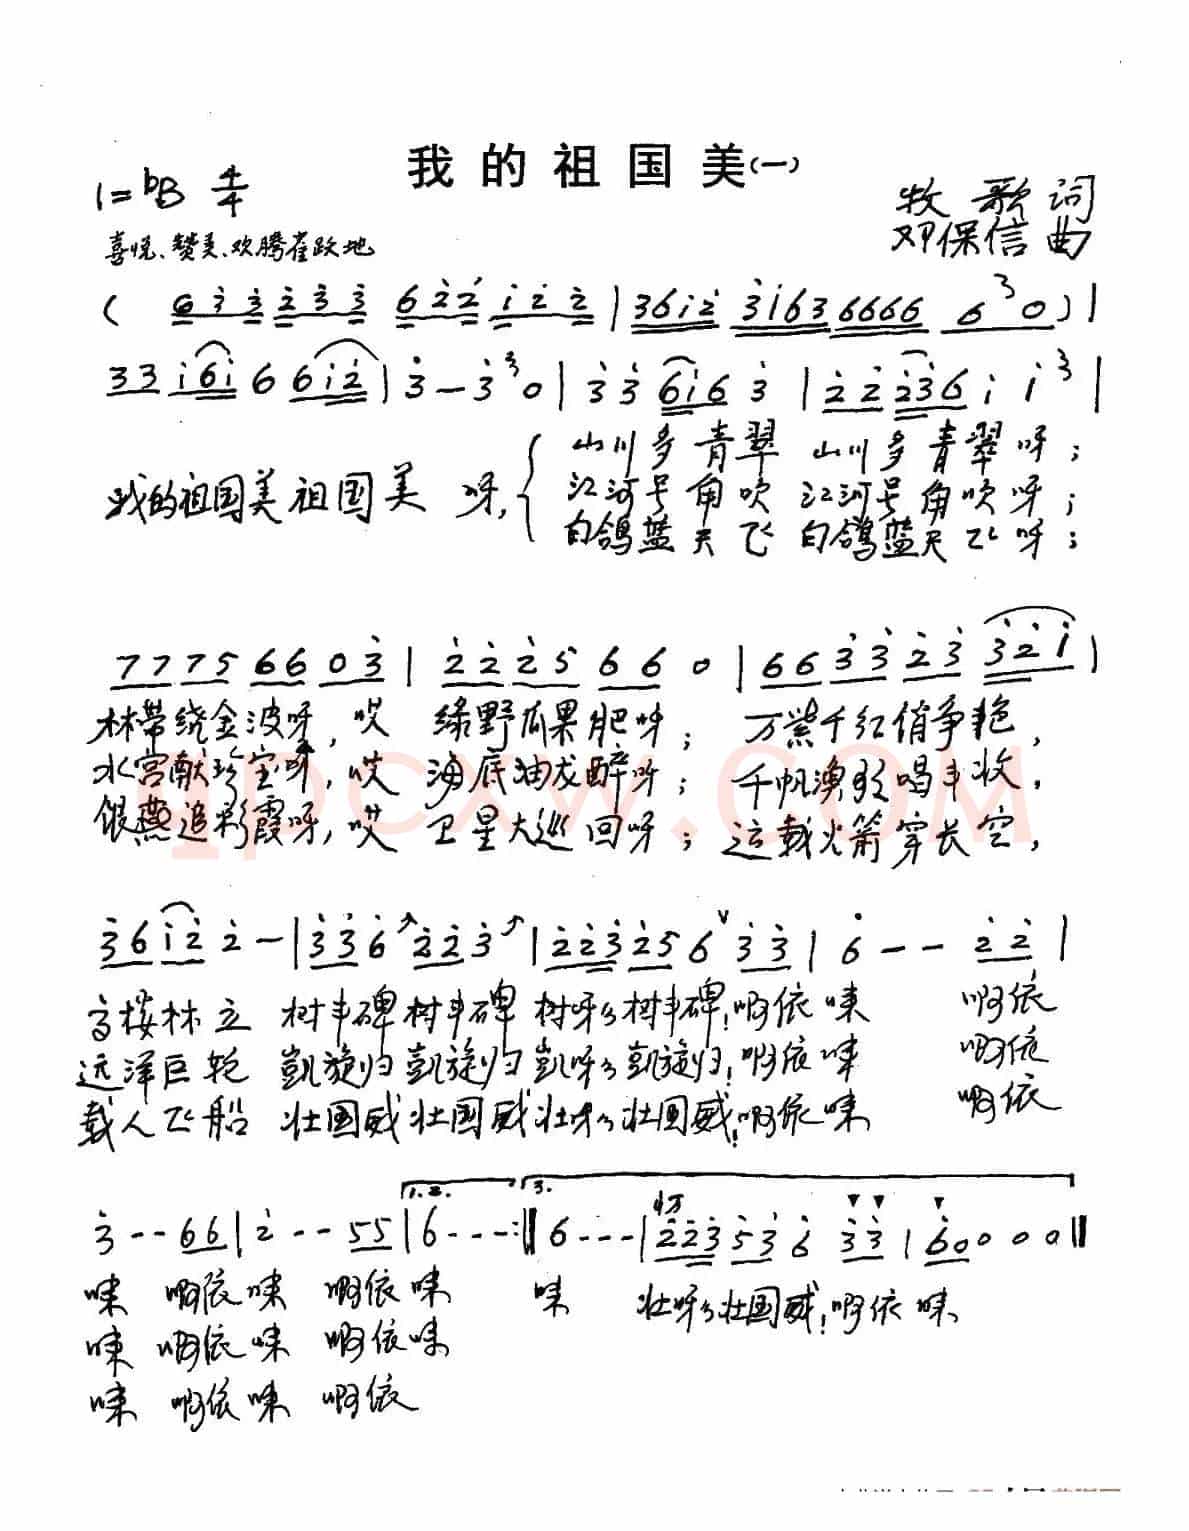 我的祖国美(一)
1=bB 4/4
牧歌词
邓保信曲
喜悦、赞美、欢腾雀跃地
( 6 3 3 2 3 3 6 2 2 1 2 2 | 3 6 1 2 3 1 6 3 6 6 6 6 6 3 0 ) |
3 3 1 6 1 6 6 1 2 | 3 - 3 3 0 | 3 3 6 1 6 3 | 2 2 2 3 6 1 1 3 |
我的祖国美祖国美 呀,
山川多青翠 山川多青翠呀;
江河号角吹 江河号角吹呀;
白鸽蓝天飞 白鸽蓝天飞呀;
7 7 7 5 6 6 0 3 | 2 2 2 5 6 6 0 | 6 6 3 3 2 3 3 2 1 |
林带绕金波呀, 哎 绿野瓜果肥呀; 万紫千红俏争艳,
水宫献珍宝呀, 哎 海底油龙醉呀; 千帆渔歌唱丰收,
银燕追彩霞呀, 哎 卫星大巡回呀; 运载火箭穿长空,
qpcxw.COM
3 6 1 2 2 - | 3 3 6 2 2 3 | 2 2 3 2 5 6 ∨ 3 3 | 6 - - 2 2 |
高楼林立 树丰碑树丰碑 树呀么树丰碑!啊依㖠 啊依
远洋巨轮 凯旋归凯旋归 凯呀么凯旋归!啊依㖠 啊依
载人飞船 壮国威壮国威 壮呀么壮国威!啊依㖠 啊依
1.2. 3.
3 - - 6 6 | 2 - - 5 5 | 6 - - - :‖ 6 - - - | 2 2 3 5 3 6 3 3 | 6 0 0 0 0 ‖
㖠 啊依㖠 啊依㖠 㖠 壮呀么壮国威!啊依㖠
㖠 啊依㖠 啊依㖠
㖠 啊依㖠 啊依